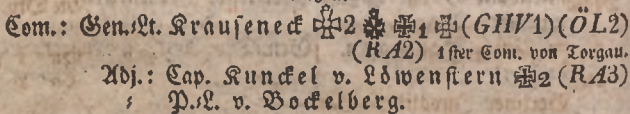 Com.: Gen.Lt. Krauseneck ✠2 ✠ ✠1 ✠ (GHV1) (ÖL2)
(RA2) 1ster Com. von Torgau.
Adj.: Cap. Kunckel v. Löwenstern ✠2 (RA3)
: P.L. v. Bockelberg.